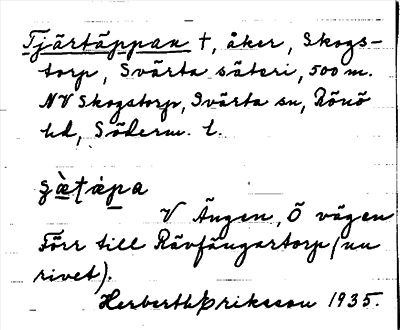 Tjärtäppan †, åker, Skogs-
torp, Svärta säteri, 500 m.
NV Skogstorp, Svärta sn, Rönö
hd, Söderm. l.
V Ängen, Ö vägen
Förr till Rävfängartorp (nu
rivet).
Herberth Eriksson 1935.